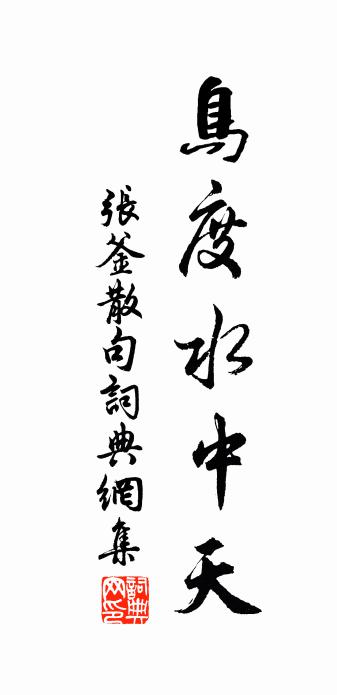 鳥度水中天
張釜散句詞典網集
詞典網印